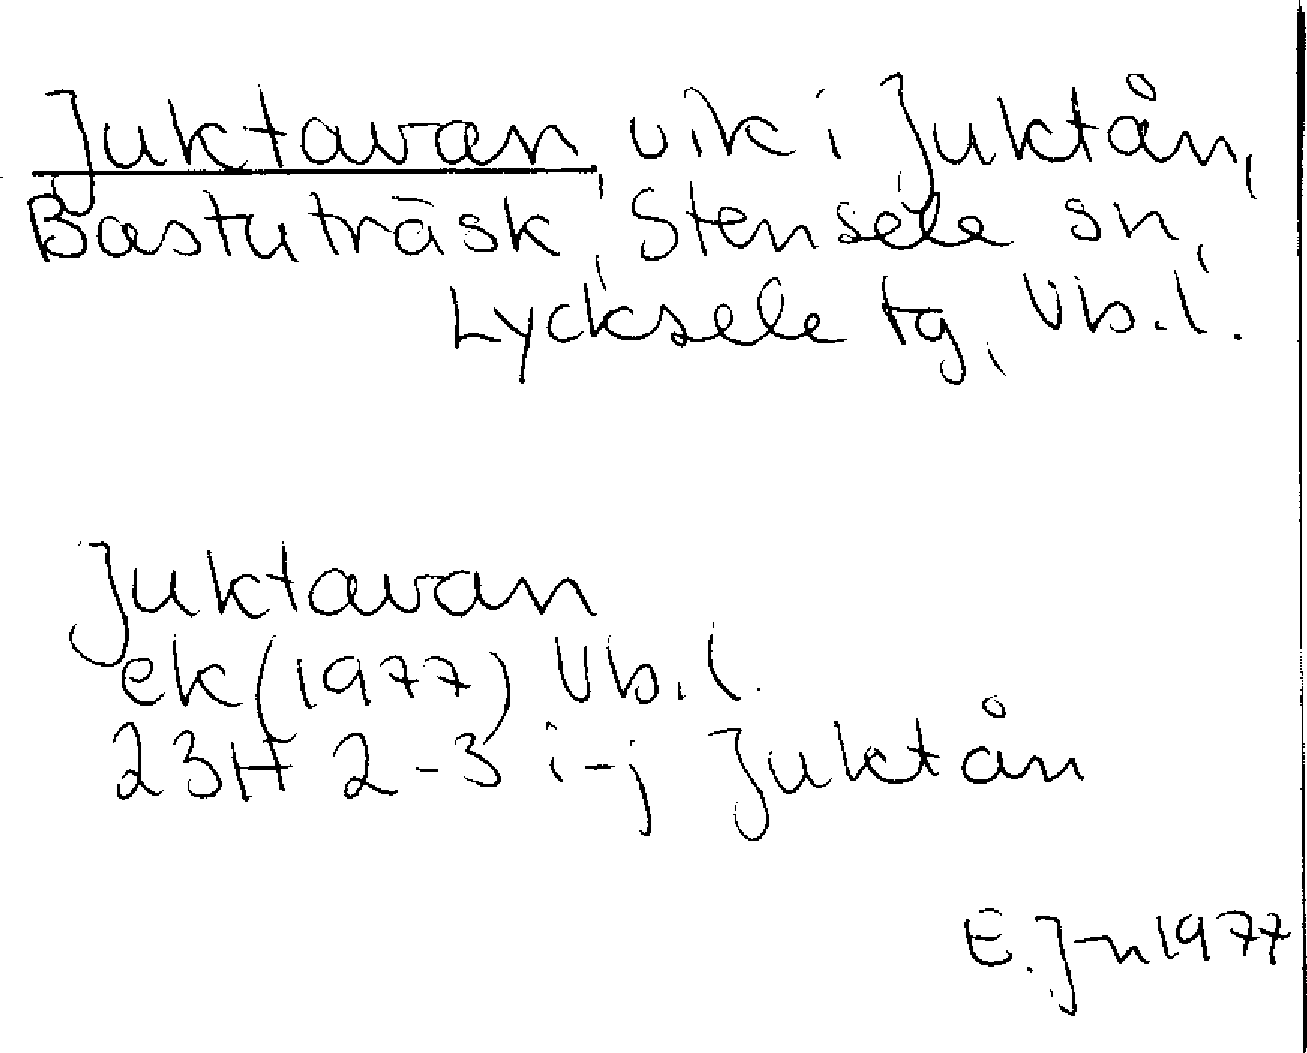 Juktavan, vik i Juktån,
Bastuträsk, Stensele sn,
Lycksele tg, Vb.l.
Juktavan
ek (1977) Vb.l.
23H 2-3 i-j Juktån
E.J-n 1977